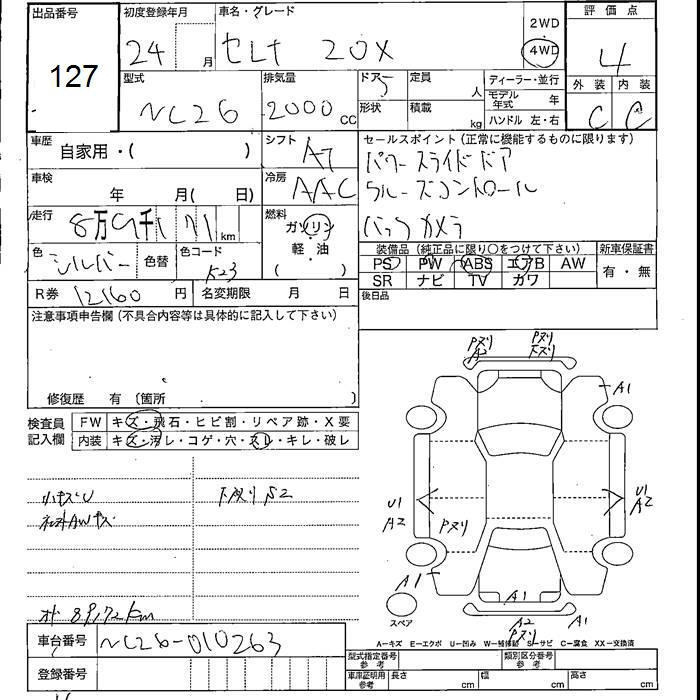 出品番号
127
初度登録年月
24 月
車名・グレード
セレナ 20X
2WD
4WD
評価点
4
外装 内装
C C
型式
NC26
排気量
2000 CC
ドア
5
形状
定員
人
積載
kg
ディーラー・並行
モデル年式 年
ハンドル 左・右
車歴
自家用・( )
シフト
AT
車検
年 月( 日)
冷房
AAC
走行
8万9千171 km
燃料
ガソリン
軽・油
( )
色
シルバー
色替
色コード
K23
R券 12160 円
名変期限 月 日
セールスポイント(正常に機能するものに限ります)
パワースライドドア
クルーズコントロール
バックカメラ
装備品(純正品に限り○をつけて下さい)
新車保証書
PS PW ABS エアB AW
SR ナビ TV カワ
有・無
後日品
注意事項申告欄(不具合内容等は具体的に記入して下さい)
修復歴 有(箇所 )
検査員
記入欄
FW キズ・飛石・ヒビ割・リペア跡・X要
内装 キズ・汚レ・コゲ・穴・スレ・キレ・破レ
小キズU
下ヌリS2
オド 89172km
車台番号
NC26-010263
登録番号
Pヌリ
A2
Pヌリ
下ヌリ
A1
U1
A2
Pヌリ
U1
A2
A1
スペア
A1
A2
Pヌリ
A1
A―キズ E―エクボ U―凹み W―補修跡 S―サビ C―腐食 XX―交換済
型式指定番号
参考
類別区分番号
参考
車庫証明用
参考
長さ cm
幅 cm
高さ cm